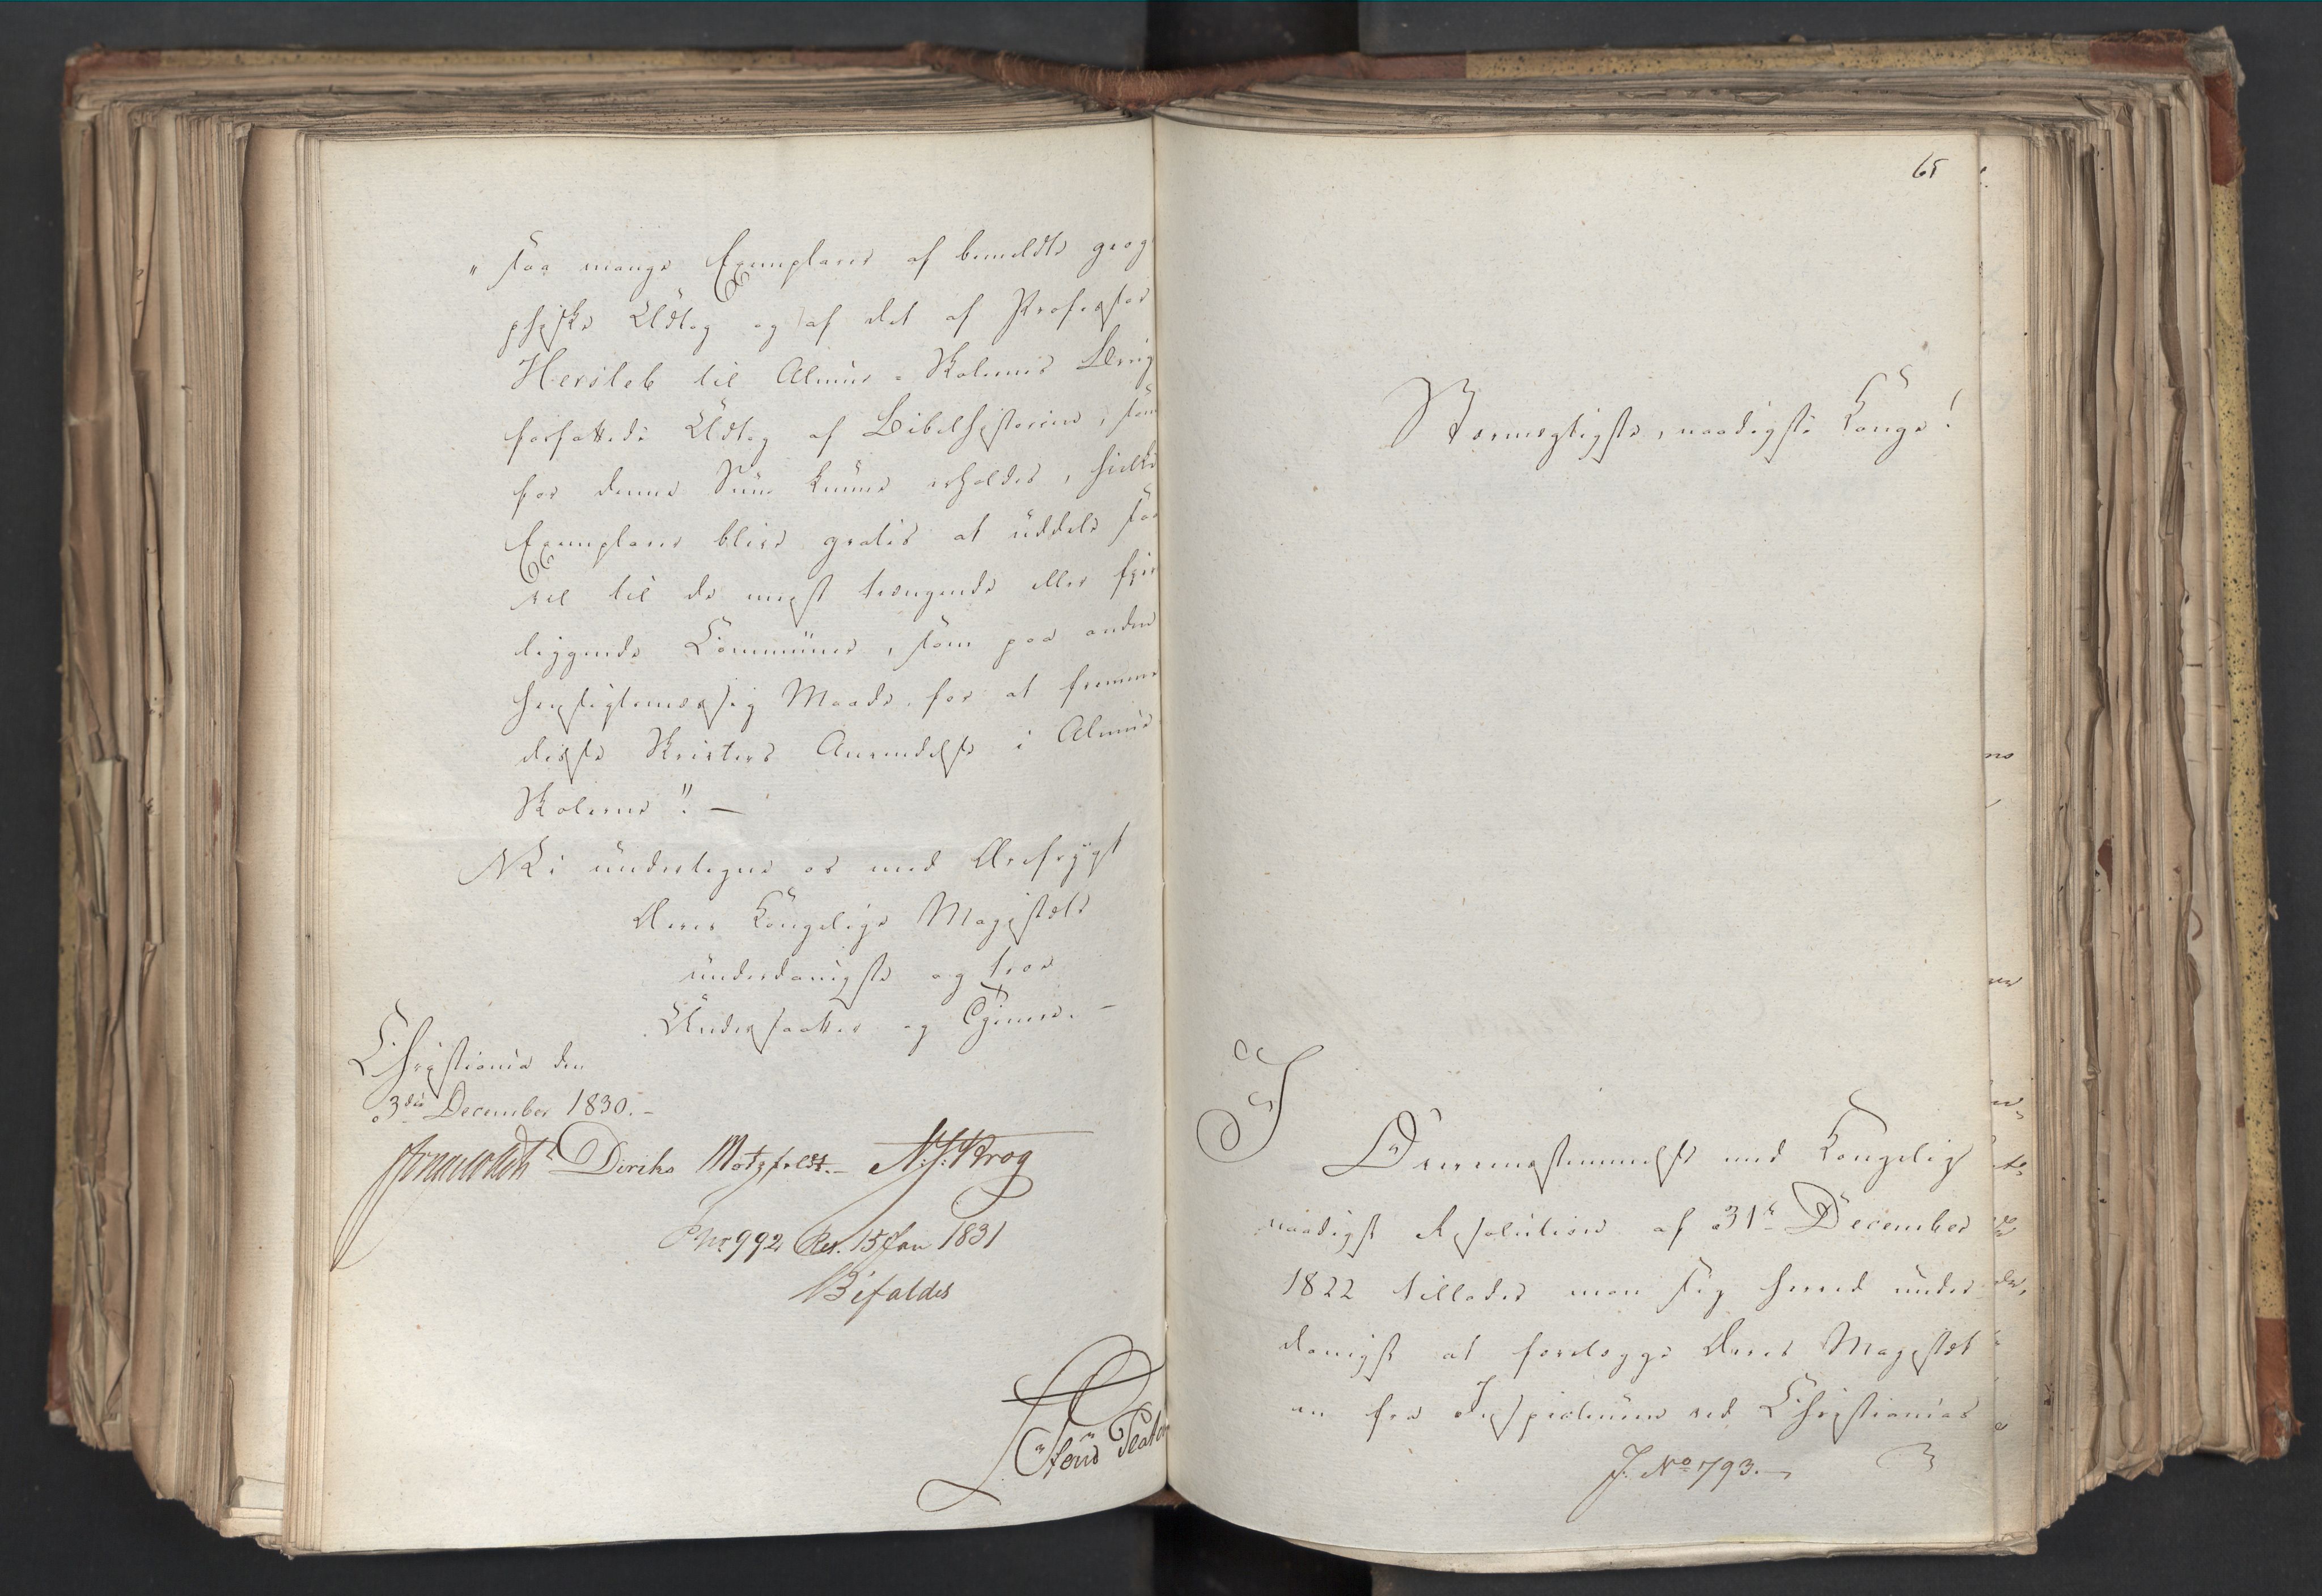 "saa mange Exemplarer af bemeldte geog
phiske Udtog og af det af Professor
Hersleb til Almue-Skolernes Brug
forfattede Udtog af Bibelhistorien, som
for denne Sum kunne erholdes, hvilke
Exemplarer blive gratis at uddele saa
vel til de meest trængende eller fra
liggende Communer, som paa anden
hensigtsmæssig Maade for at fremme
disse Skrivters Anvendelse i Almue
Skolerne". —
Vi undertegne os med Ærefrygt
Deres Kongelige Majestæts
underdanigste og troe
Undersaatter og Tjenere. —
Christiania den
3die December 1830. —
Diriks Motzfeldt. N. J. Krog
No 992 Res. 15 Jan 1831
Bifaldes
65
Stormægtigste, naadigste Konge!
I
Overeensstemmelse med Kongelig
naadigst Resolution af 31te December
1822 tillader man sig herved under
danigst at forelægge Deres Majestæt
en fra Inspecteuren ved Christianias
J. No 793. —